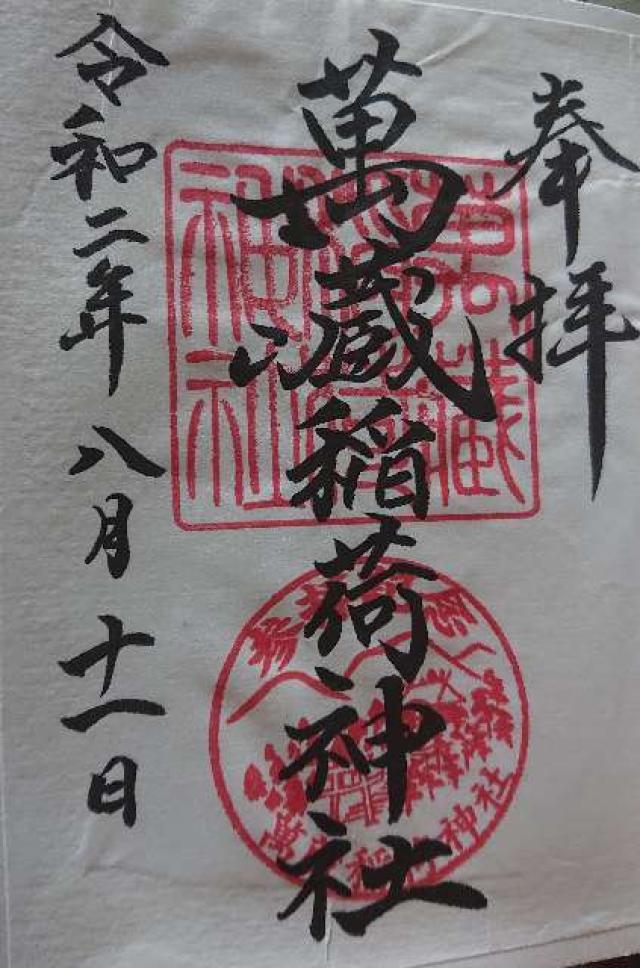 奉拝
萬蔵稲荷神社
令和二年八月十一日
萬藏稲荷神社
萬蔵稲荷神社